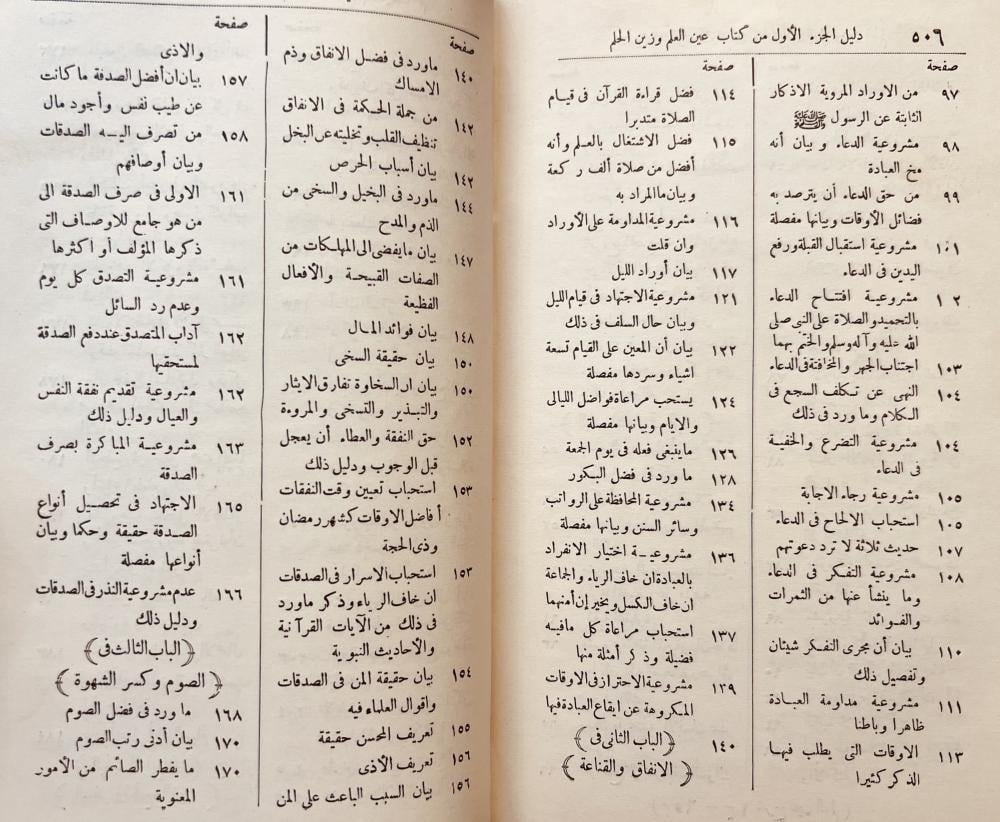 ٥٠٦ دليل الجزء الأول من كتاب عين العلم وزين الحلم
صفحة
٩٧ من الاوراد المروية الاذكار
الثابتة عن الرسول ﷺ
٩٨ مشروعية الدعاء و بيان أنه
مخ العبادة
٩٩ من حق الدعاء أن يترصد به
فضائل الأوقات وبيانها مفصلة
١٠١ مشروعية استقبال القبلة ورفع
اليدين فى الدعاء
١٠٢ مشروعية افتتاح الدعاء
بالتحميد والصلاة على النبى صلى
الله عليه وآله وسلم والختم بهما
١٠٣ اجتناب الجهر والمخافتة فى الدعاء
١٠٤ النهى عن تكلف السجع فى
الكلام وما ورد فى ذلك
١٠٤ مشروعية التضرع والخفية
فى الدعاء
١٠٥ مشروعية رجاء الاجابة
١٠٥ استحباب الالحاح فى الدعاء
١٠٧ حديث ثلاثة لا ترد دعوتهم
١٠٨ مشروعية التفكر فى الدعاء
وما ينشأ عنها من الثمرات
والفوائد
١١٠ بيان أن مجرى التفكر شيئان
وتفصيل ذلك
١١١ مشروعية مداومة العبادة
ظاهرا وباطنا
١١٣ الاوقات التى يطلب فيها
الذكر كثيرا
صفحة
١١٤ فضل قراءة القرآن فى قيام
الصلاة متدبرا
١١٥ فضل الاشتغال بالعلم وأنه
أفضل من صلاة ألف ركعة
وبيان ما المراد به
١١٦ مشروعية المداومة على الأوراد
وان قلت
١١٧ بيان أوراد الليل
١٢١ مشروعية الاجتهاد فى قيام الليل
وبيان حال السلف فى ذلك
١٢٢ بيان أن المعين على القيام تسعة
اشياء وسردها مفصلة
١٢٤ يستحب مراعاة فواضل الليالى
والايام وبيانها مفصلة
١٢٦ ما ينبغى فعله فى يوم الجمعة
١٢٨ ما ورد فى فضل البكور
١٣٤ مشروعية المحافظة على الرواتب
وسائر السنن وبيانها مفصلة
١٣٦ مشروعية اختيار الانفراد
بالعبادة ان خاف الرياء والجماعة
ان خاف الكسل ويخير إن أمنهما
١٣٧ استحباب مراعاة كل ما فيه
فضيلة وذكر أمثلة منها
١٣٩ مشروعية الاحتراز فى الاوقات
المكروهة عن ايقاع العبادة فيها
١٤٠ ﴿الباب الثانى فى﴾
﴿الانفاق والقناعة﴾
صفحة
١٤٠ ما ورد فى فضل الانفاق وذم
الامساك
١٤٢ من جملة الحكمة فى الانفاق
تنظيف القلب وتخليته عن البخل
١٤٢ بيان أسباب الحرص
١٤٤ ما ورد فى البخيل والسخى من
الذم والمدح
١٤٧ بيان ما يفضى الى المهلكات من
الصفات القبيحة والأفعال
الفظيعة
١٤٨ بيان فوائد المال
١٥٠ بيان حقيقة السخى
١٥٠ بيان ار السخاوة تفارق الايثار
والتبذير والتسخى والمروءة
١٥٢ حق النفقة والعطاء أن يعجل
قبل الوجوب ودليل ذلك
١٥٣ استحباب تعيين وقت النفقات
أفاضل الاوقات كشهر رمضان
وذى الحجة
١٥٣ استحباب الاسرار فى الصدقات
ان خاف الرياء وذكر ماورد
فى ذلك من الآيات القرآنية
والأحاديث النبوية
١٥٤ بيان حقيقة المن فى الصدقات
واقوال العلماء فيه
١٥٥ تعريف المحسن حقيقة
١٥٦ تعريف الأذى
١٥٦ بيان السبب الباعث على المن
صفحة
والاذى
١٥٧ بيان ان أفضل الصدقة ما كانت
عن طيب نفس وأجود مال
١٥٨ من تصرف اليه الصدقات
وبيان أوصافهم
١٦١ الاولى فى صرف الصدقة الى
من هو جامع للاوصاف التى
ذكرها المؤلف أو اكثرها
١٦١ مشروعية التصدق كل يوم
وعدم رد السائل
١٦٢ آداب المتصدق عند دفع الصدقة
لمستحقيها
١٦٢ مشروعية تقديم نفقة النفس
والعيال ودليل ذلك
١٦٣ مشروعية المباكرة بصرف
الصدقة
١٦٥ الاجتهاد فى تحصيل أنواع
الصدقة حقيقة وحكما وبيان
أنواعها مفصلة
١٦٦ عدم مشروعية النذر فى الصدقات
ودليل ذلك
﴿الباب الثالث فى﴾
﴿الصوم وكسر الشهوة﴾
١٦٨ ما ورد فى فضل الصوم
١٧٠ بيان أدنى رتب الصوم
١٧٠ ما يفطر الصائم من الأمور
المعنوية